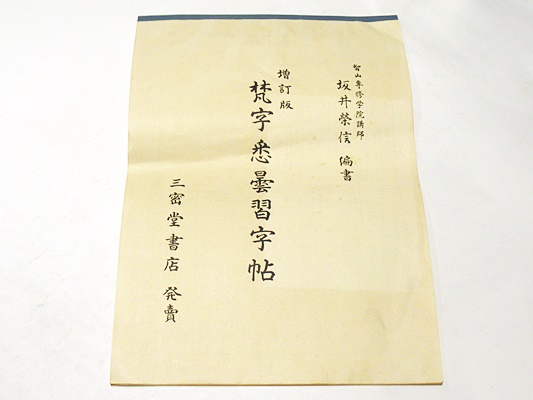 智山專修学院講師
坂井榮信 編書
増訂版
梵字悉曇習字帖
三密堂書店 発賣